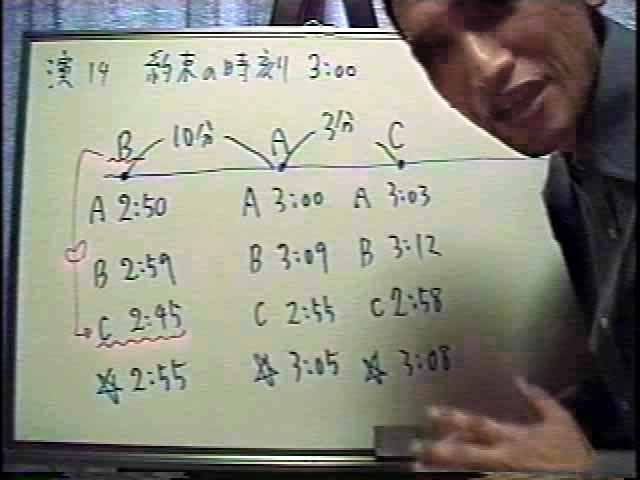 演14 約束の時刻 3:00
B 10分 A 3分 C
A 2:50 A 3:00 A 3:03
B 2:59 B 3:09 B 3:12
C 2:45 C 2:55 C 2:58
☆ 2:55 ☆ 3:05 ☆ 3:08